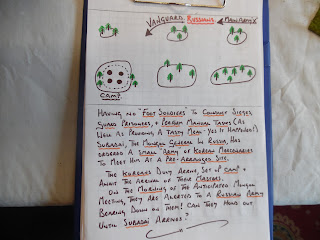 VANGUARD RUSSIANS MAIN ARMY
CAMP
HAVING NO "FOOT SOLDIERS" TO CONDUCT SIEGES
GUARD PRISONERS, + PERFORM MANUAL TASKS (AS
WELL AS PROVIDING A TASTY MEAL - YES IT HAPPENED!)
SUBADAI, THE MONGOL GENERAL IN RUSSIA, HAS
ORDERED A SMALL ARMY OF KOREAN MERCENARIES
TO MEET HIM AT A PRE-ARRANGED SITE.
THE KOREANS DULY ARRIVE, SET UP CAMP +
AWAIT THE ARRIVAL OF THEIR MASTERS.
ON THE MORNING OF THE ANTICIPATED MONGOL
MEETING, THEY ARE ALERTED TO A RUSSIAN ARMY
BEARING DOWN ON THEM! CAN THEY HOLD OUT
UNTIL SUBADAI ARRIVES?